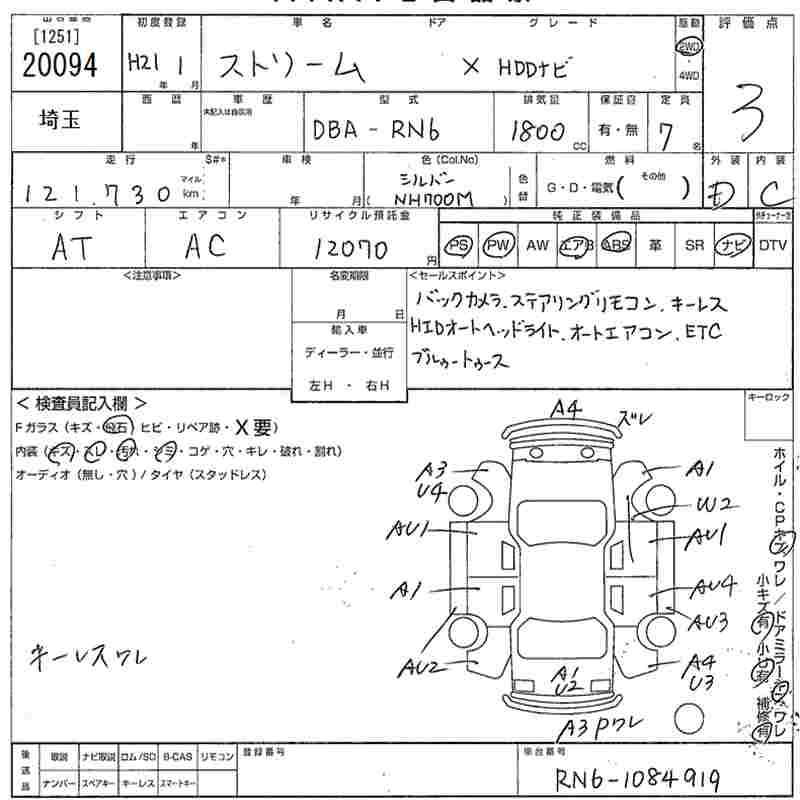 [1251]
20094
埼玉
初度登録
H21 1
年 月
車名
ドア
グレード
ストリーム × HDDナビ
駆動
2WD
・
4WD
評価点
3
西暦
年
車歴
未記入は自家用
型式
DBA-RN6
排気量
1800 CC
保証書
有・無
定員
7 名
走行
S#*
121,730
マイル
km
車検
年 月
色(Col.No)
シルバー
(NH700M)
色替
燃料
G・D・電気( その他 )
外装
D
内装
C
シフト
AT
エアコン
AC
リサイクル預託金
12070 円
純正装備品
PS PW AW エアB ABS 革 SR ナビ DTV
<注意事項>
名変期限
月 日
輸入車
ディーラー・並行
左H ・ 右H
<セールスポイント>
バックカメラ、ステアリングリモコン、キーレス
HIDオートヘッドライト、オートエアコン、ETC
ブルゥートゥース
キーロック
<検査員記入欄>
Fガラス(キズ・飛石 ヒビ・リペア跡・X要)
内装(キズ・スレ・汚れ・シミ・コゲ・穴・キレ・破れ・割れ)
オーディオ(無し・穴)/タイヤ(スタッドレス)
A4 ズレ
A3
U4
A1
W2
AU1
AU1
A1
AU4
AU3
AU2
A4
U3
A1
U2
A3 Pワレ
キーレスワレ
ホイル・CPキズ ワレ/ドアミラーキズ ワレ
小キズ有 小凹有 補修有
後送品
取説 ナビ取説 ロム/SD B-CAS リモコン
ナンバー スペアキー キーレス スマートキー
登録番号
車台番号
RN6-1084919